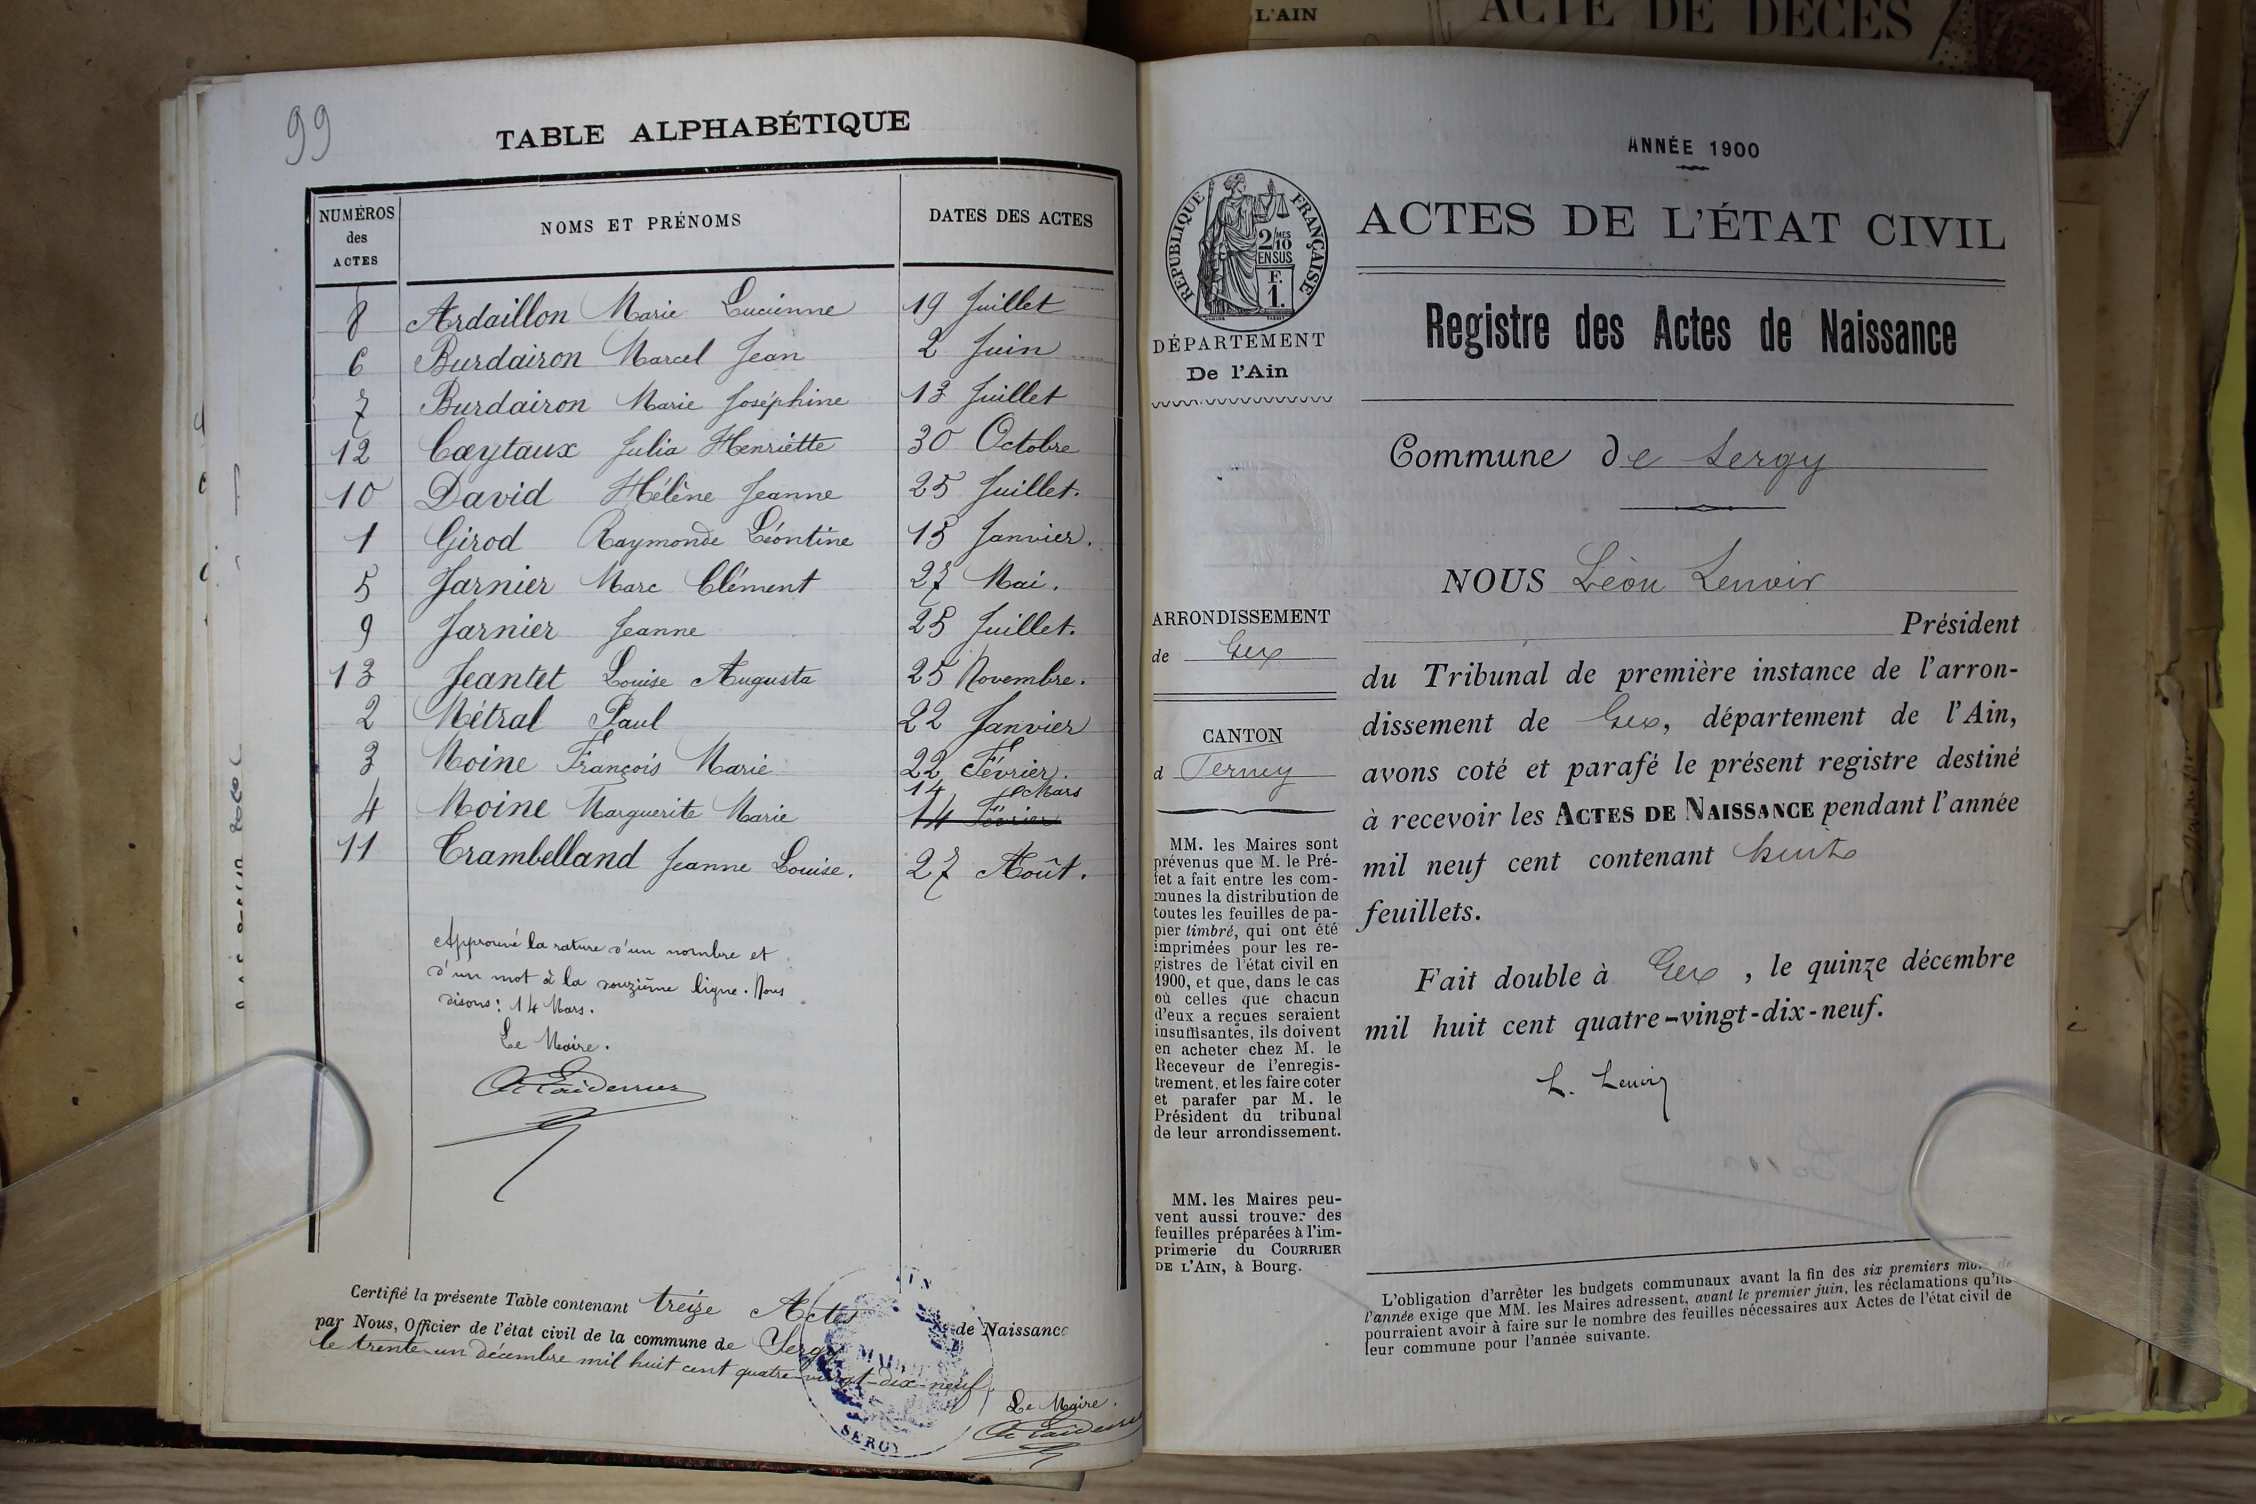 99
TABLE ALPHABÉTIQUE
NUMÉROS
des
ACTES
NOMS ET PRÉNOMS
DATES DES ACTES
8 Ardaillon Marie Lucienne 19 Juillet
6 Burdairon Marcel Jean 2 Juin
7 Burdairon Marie Joséphine 13 Juillet
12 Cœytaux Julia Henriette 30 Octobre
10 David Hélène Jeanne 25 Juillet.
1 Girod Raymonde Léontine 15 Janvier.
5 Jarnier Marc Clément 27 Mai.
9 Jarnier Jeanne 25 Juillet.
13 Jeantet Louise Augusta 25 Novembre.
2 Métral Paul 22 Janvier
3 Moine François Marie 22 Février.
14 Mars
4 Moine Marguerite Marie 14 Février
11 Trambelland Jeanne Louise. 27 Août.
Approuvé la rature d'un nombre et
d'un mot à la douzième ligne. Nous
disons: 14 Mars.
Le Maire.
Certifié la présente Table contenant treize Actes de Naissance
par Nous, Officier de l'état civil de la commune de Sergy
le trente-un décembre mil huit cent quatre-vingt-dix-neuf.
MAIRIE
SERGY
Le Maire.
L'AIN
ACTE DE DÉCÈS
ANNÉE 1900
RÉPUBLIQUE FRANÇAISE
2/10 MES
EN SUS
F.
1.
DÉPARTEMENT
De l'Ain
ARRONDISSEMENT
de Gex
CANTON
d Ferney
MM. les Maires sont
prévenus que M. le Pré-
fet a fait entre les com-
munes la distribution de
toutes les feuilles de pa-
pier timbré, qui ont été
imprimées pour les re-
gistres de l'état civil en
1900, et que, dans le cas
où celles que chacun
d'eux a reçues seraient
insuffisantes, ils doivent
en acheter chez M. le
Receveur de l'enregis-
trement, et les faire coter
et parafer par M. le
Président du tribunal
de leur arrondissement.
MM. les Maires peu-
vent aussi trouver des
feuilles préparées à l'im-
primerie du COURRIER
DE L'AIN, à Bourg.
ACTES DE L'ÉTAT CIVIL
Registre des Actes de Naissance
Commune de Sergy
NOUS Léon Lenoir
Président
du Tribunal de première instance de l'arron-
dissement de Gex, département de l'Ain,
avons coté et parafé le présent registre destiné
à recevoir les ACTES DE NAISSANCE pendant l'année
mil neuf cent contenant huit
feuillets.
Fait double à Gex, le quinze décembre
mil huit cent quatre-vingt-dix-neuf.
L. Lenoir
L'obligation d'arrêter les budgets communaux avant la fin des six premiers mois de
l'année exige que MM. les Maires adressent, avant le premier juin, les réclamations qu'ils
pourraient avoir à faire sur le nombre des feuilles nécessaires aux Actes de l'état civil de
leur commune pour l'année suivante.